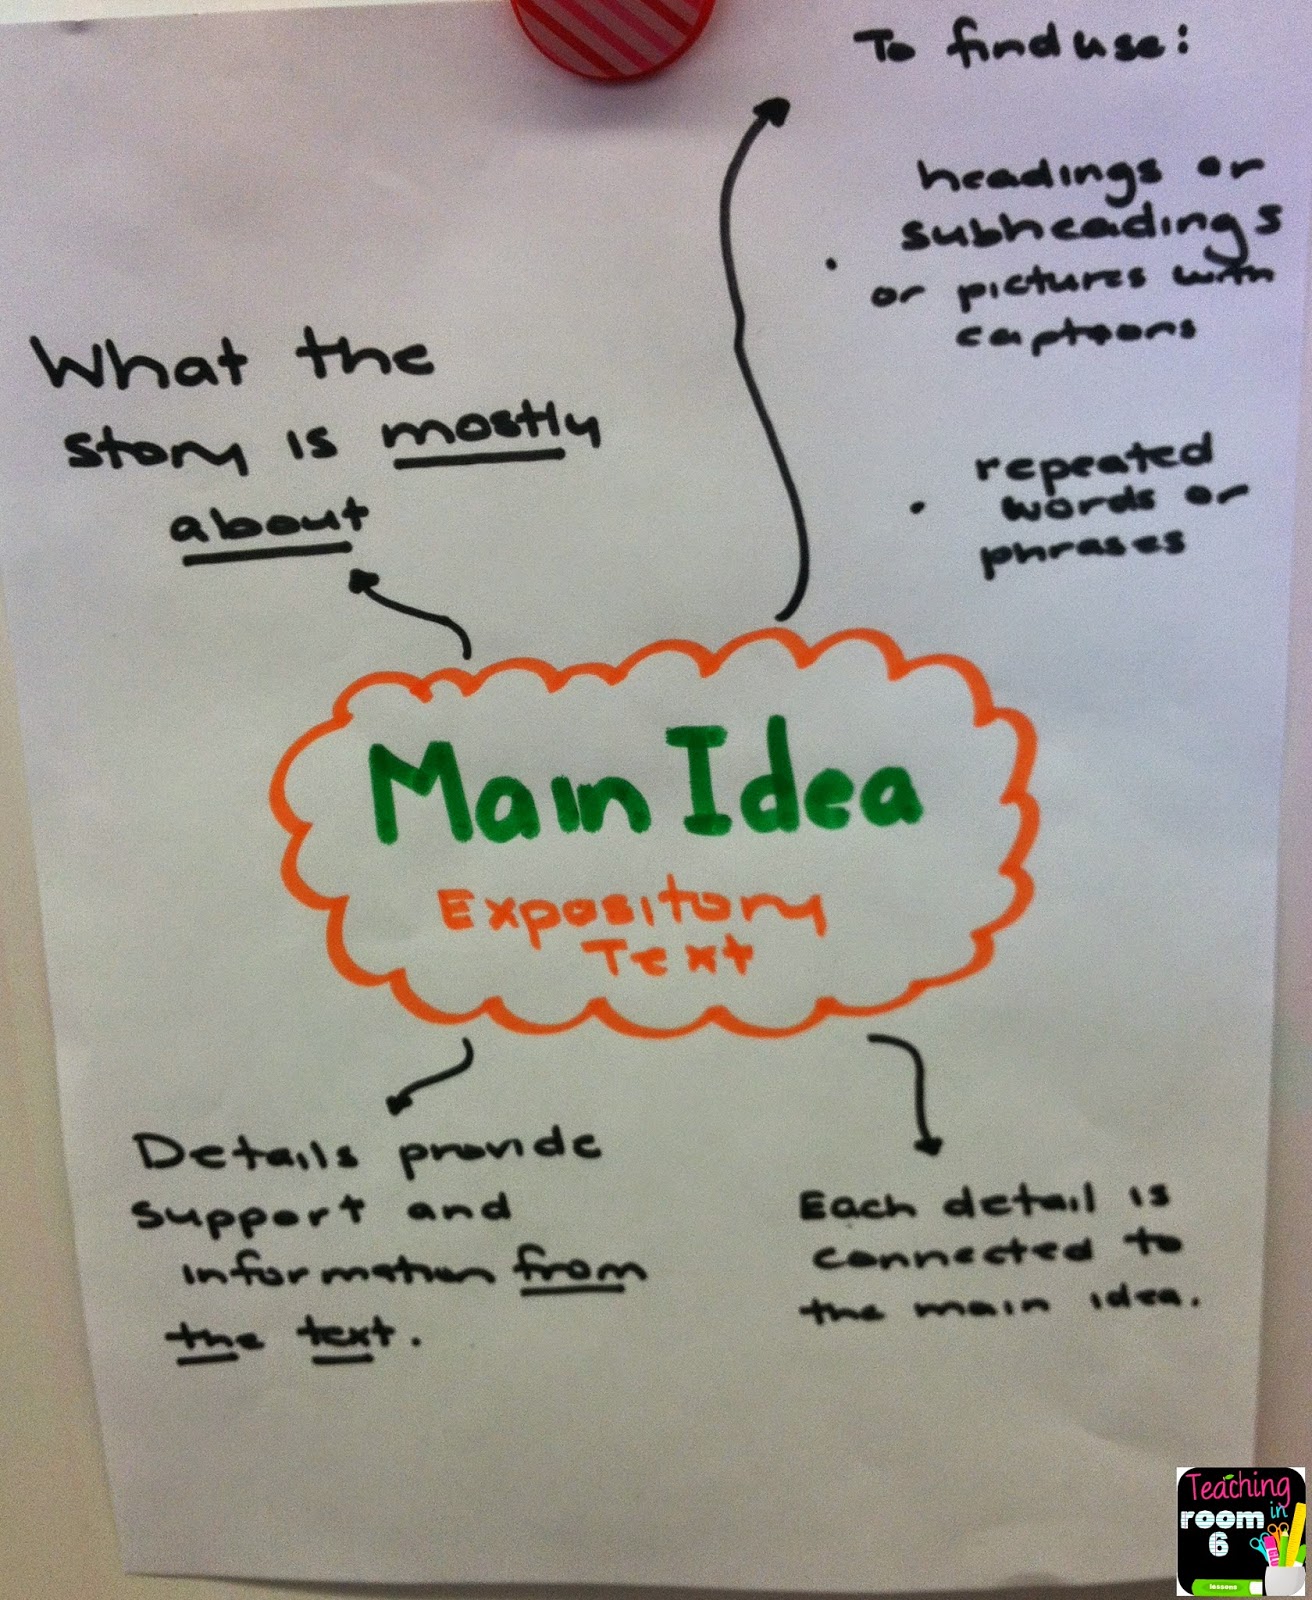 To find use:
headings or
subheadings
or pictures with
captions
repeated
words or
phrases
What the
story is mostly
about
Main Idea
Expository
Text
Details provide
support and
information from
the text.
Each detail is
connected to
the main idea.
Teaching
in
room
6
lessons